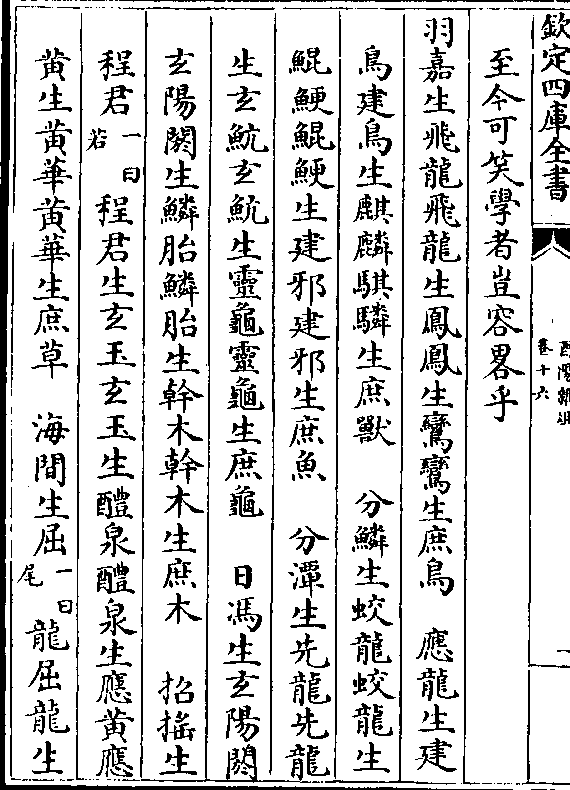 欽定四庫全書
酉陽雜俎
卷十六
一
至今可笑學者豈容畧乎
羽嘉生飛龍飛龍生鳳鳳生鸞鸞生庶鳥　應龍生建
鳥建鳥生麒麟騏驎生庶獸　分鱗生蛟龍蛟龍生
鯤鯁鯤鯁生建邪建邪生庶魚　分潭生先龍先龍
生玄魭玄魭生靈龜靈龜生庶龜　日馮生玄陽閼
玄陽閼生鱗胎鱗胎生幹木幹木生庶木　招搖生
程君一曰若程君生玄玉玄玉生醴泉醴泉生應黃應
黃生黃華黃華生庶草　海間生屈一曰尾龍屈龍生